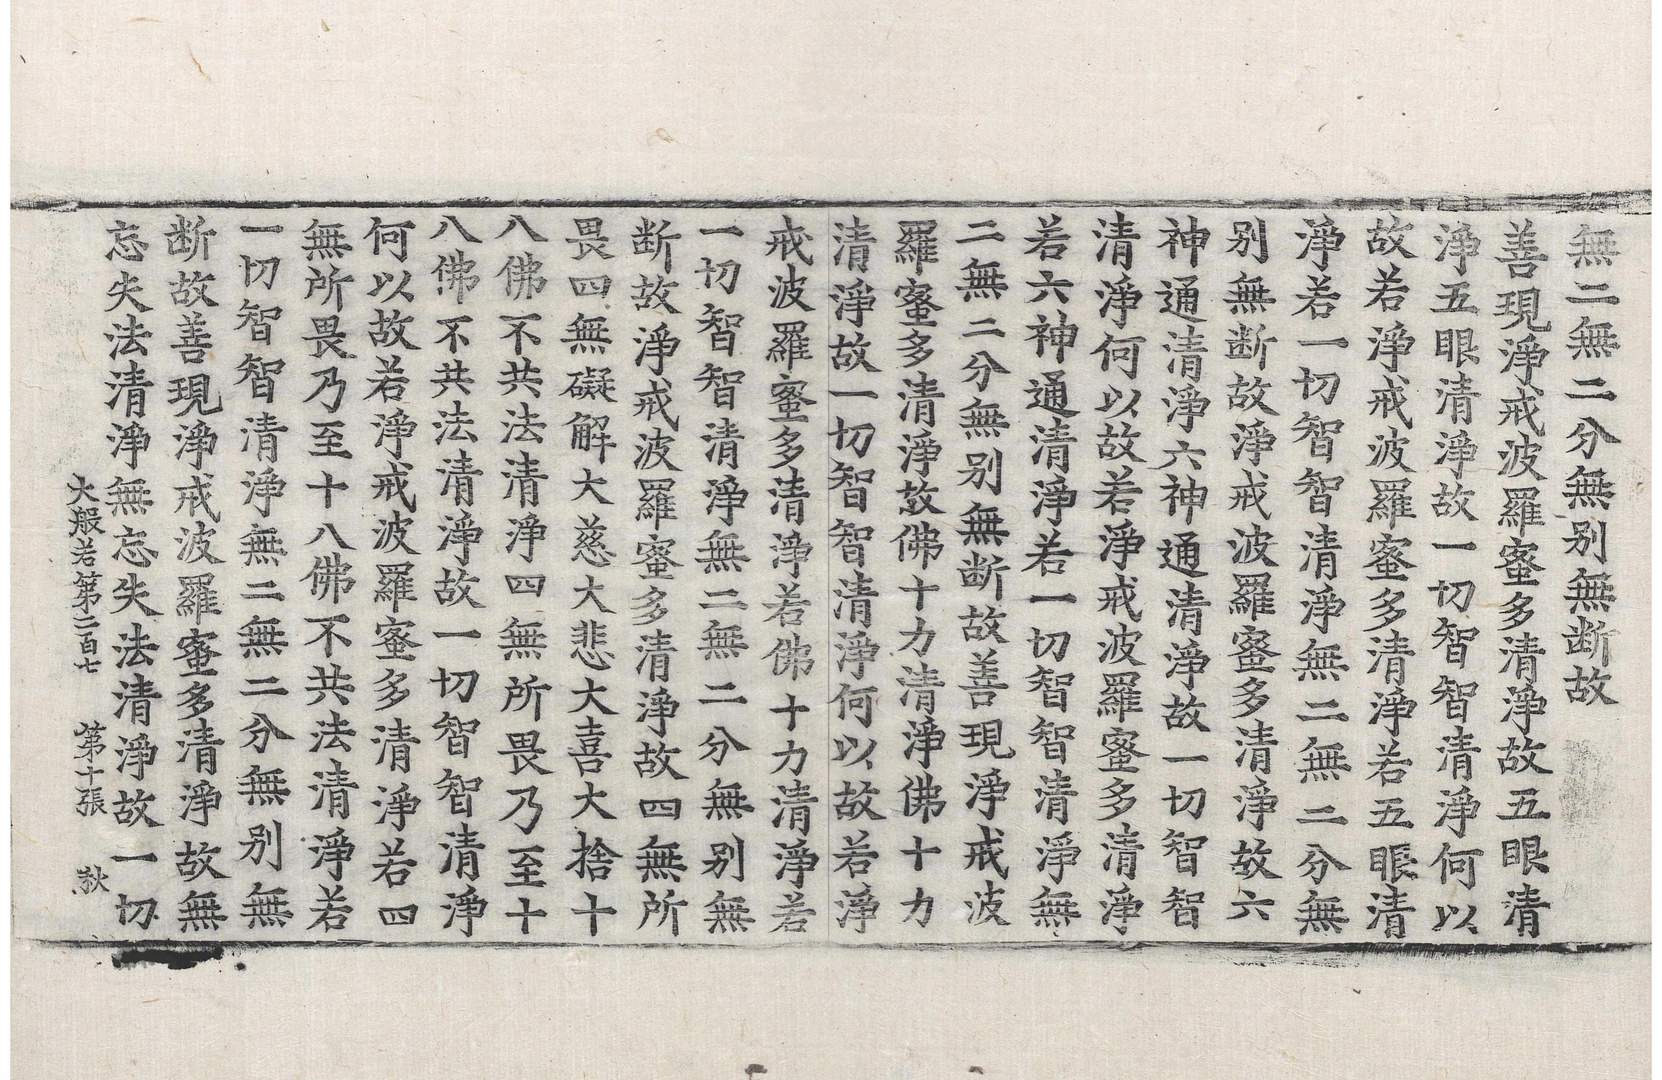 無二無二分無别無断故
善現淨戒波羅蜜多清淨故五眼清
淨五眼清淨故一切智智清淨何以
故若淨戒波羅蜜多清淨若五眼清
淨若一切智智清淨無二無二分無
别無断故淨戒波羅蜜多清淨故六
神通清淨六神通清淨故一切智智
清淨何以故若淨戒波羅蜜多清淨
若六神通清淨若一切智智清淨無
二無二分無别無断故善現淨戒波
羅蜜多清淨故佛十力清淨佛十力
清淨故一切智智清淨何以故若淨
戒波羅蜜多清淨若佛十力清淨若
一切智智清淨無二無二分無别無
断故淨戒波羅蜜多清淨故四無所
畏四無礙解大慈大悲大喜大捨十
八佛不共法清淨四無所畏乃至十
八佛不共法清淨故一切智智清淨
何以故若淨戒波羅蜜多清淨若四
無所畏乃至十八佛不共法清淨若
一切智智清淨無二無二分無别無
断故善現淨戒波羅蜜多清淨故無
忘失法清淨無忘失法清淨故一切
大般若第二百七 第十張 秋